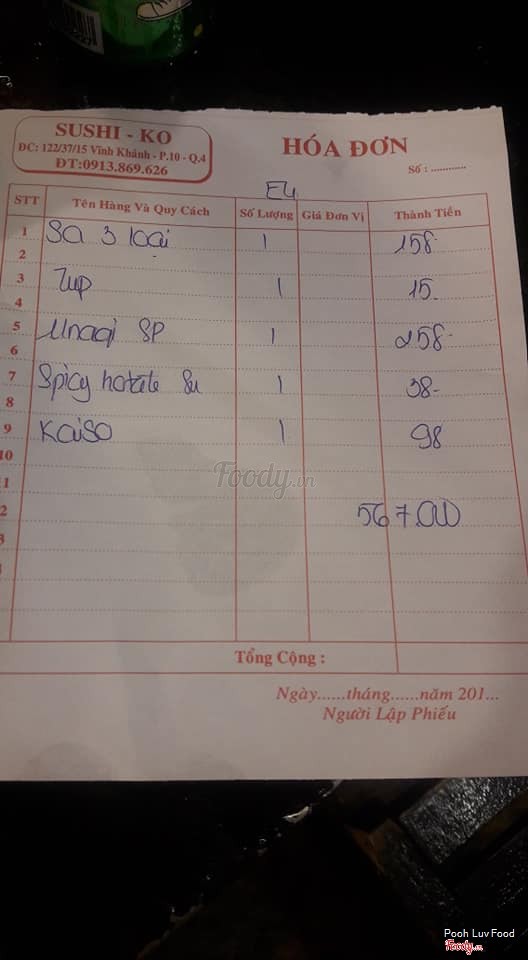 SUSHI - KO
ĐC: 122/37/15 Vĩnh Khánh - P.10 - Q.4
ĐT:0913.869.626
HÓA ĐƠN
Số : ............
E4
STT Tên Hàng Và Quy Cách Số Lượng Giá Đơn Vị Thành Tiền
1 Sa 3 loại 1 158
2
3 Zup 1 15
4
5 Unagi SP 1 258
6
7 Spicy hotate Su 1 38
8
9 Kaiso 1 98
10
1
2 567.000
Tổng Cộng :
Ngày......tháng......năm 201...
Người Lập Phiếu
Foody.vn
Pooh Luv Food
Foody.vn